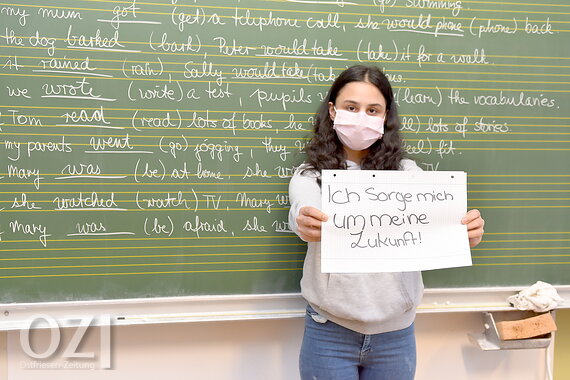 my mum got (get) a telephone call, she would phone (phone) back
the dog barked (bark) Peter would take (take) it for a walk.
it rained (rain) Sally would take (
we wrote (write) a test, pupils (learn) the vocabularies.
Tom read (read) lots of books, he lots of stories.
my parents went (go) jogging, they
Mary was (be) at home, she
she watched (watch) TV Mary
Mary was (be) afraid, she
swimming
Ich Sorge mich
um meine
Zukunft!
OZI
Ostfriesen-Zeitung